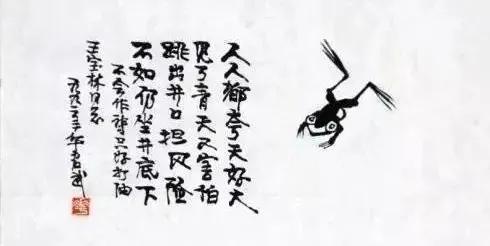 人人都夸天好大
见了青天又害怕
跳出井口担风险
不如仍坐井底下
不会作诗只好打油
王宝林同志
华君武